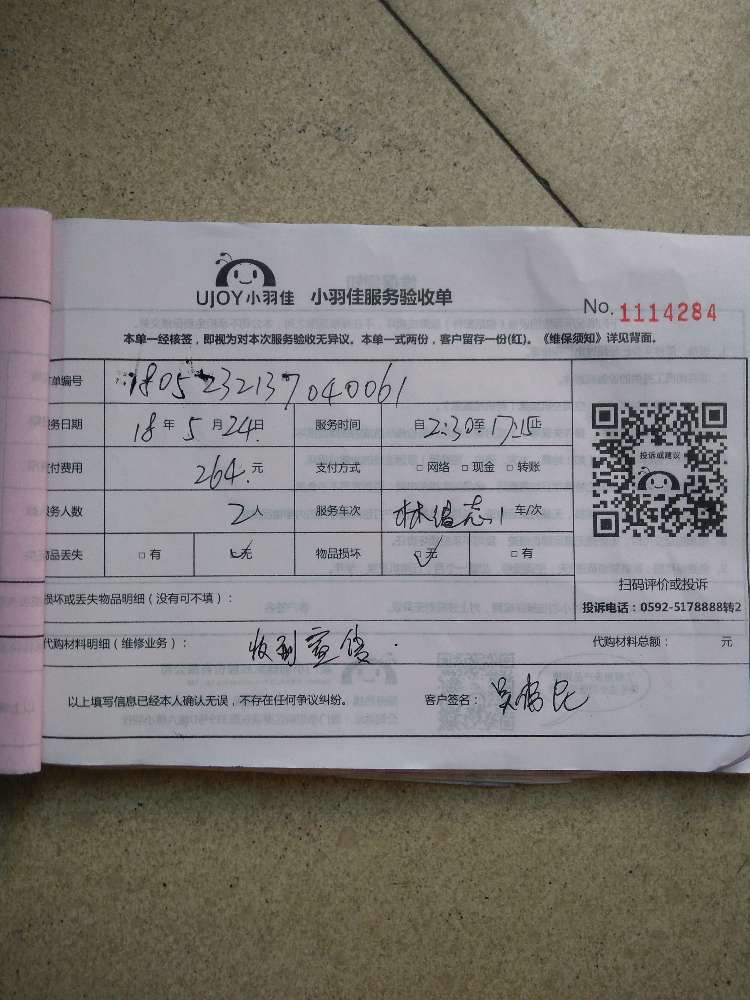 UJOY小羽佳 小羽佳服务验收单
No. 1114284
本单一经核签，即视为对本次服务验收无异议。本单一式两份，客户留存一份(红)。《维保须知》详见背面。
订单编号 1805232137040061
服务日期 18 年 5 月 24 日 服务时间 自 2:30 至 17:15 止
支付费用 264. 元 支付方式 □ 网络 □ 现金 □ 转账
服务人数 2 人 服务车次 林 志 1 车/次
物品丢失 □ 有 □ 无 物品损坏 □ 无 □ 有
损坏或丢失物品明细（没有可不填）：
投诉或建议
扫码评价或投诉
投诉电话：0592-5178888转2
代购材料明细（维修业务）： 收到宣传 代购材料总额： 元
以上填写信息已经本人确认无误，不存在任何争议纠纷。 客户签名： 吴 民